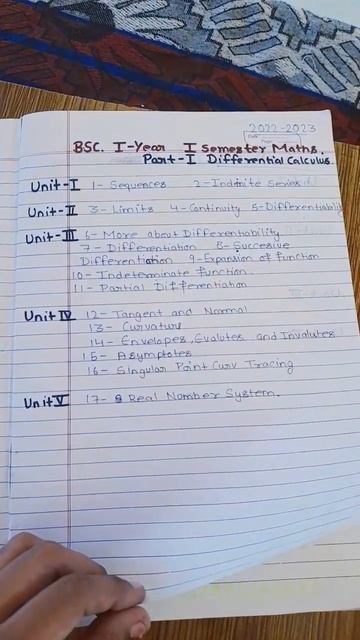 2022-2023
BSC. I-Year I Semester Maths.
Part-I Differential Calculus.
Unit-I 1- Sequences 2- Indfinite Series
Unit-II 3- Limits 4- Continuity 5- Differentiability
Unit-III 6- More about Differentiability
7- Differentiation 8- Succesive
Differentiation 9- Expansion of function
10- Indeterminate function.
11- Partial Differentiation
Unit IV 12- Tangent and Normal
13- Curvature
14- Envelopes, Evalutes and Invalutes
15- Asymptotes
16- Singular Point Curv Tracing
Unit V 17- Real Nomber System.